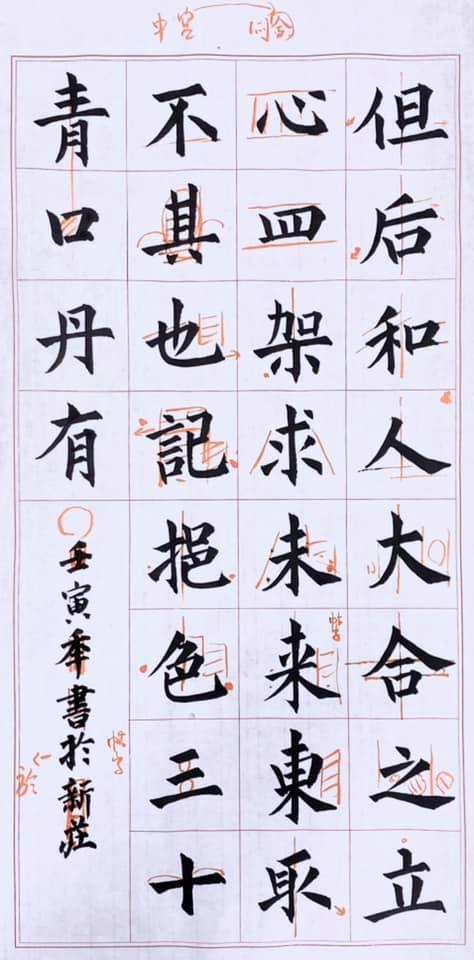 但后和人大合之立
心四架求未来東取
不其也記挹色三十
青口丹有
壬寅年書於新莊
中宮
帖字
帖字
於